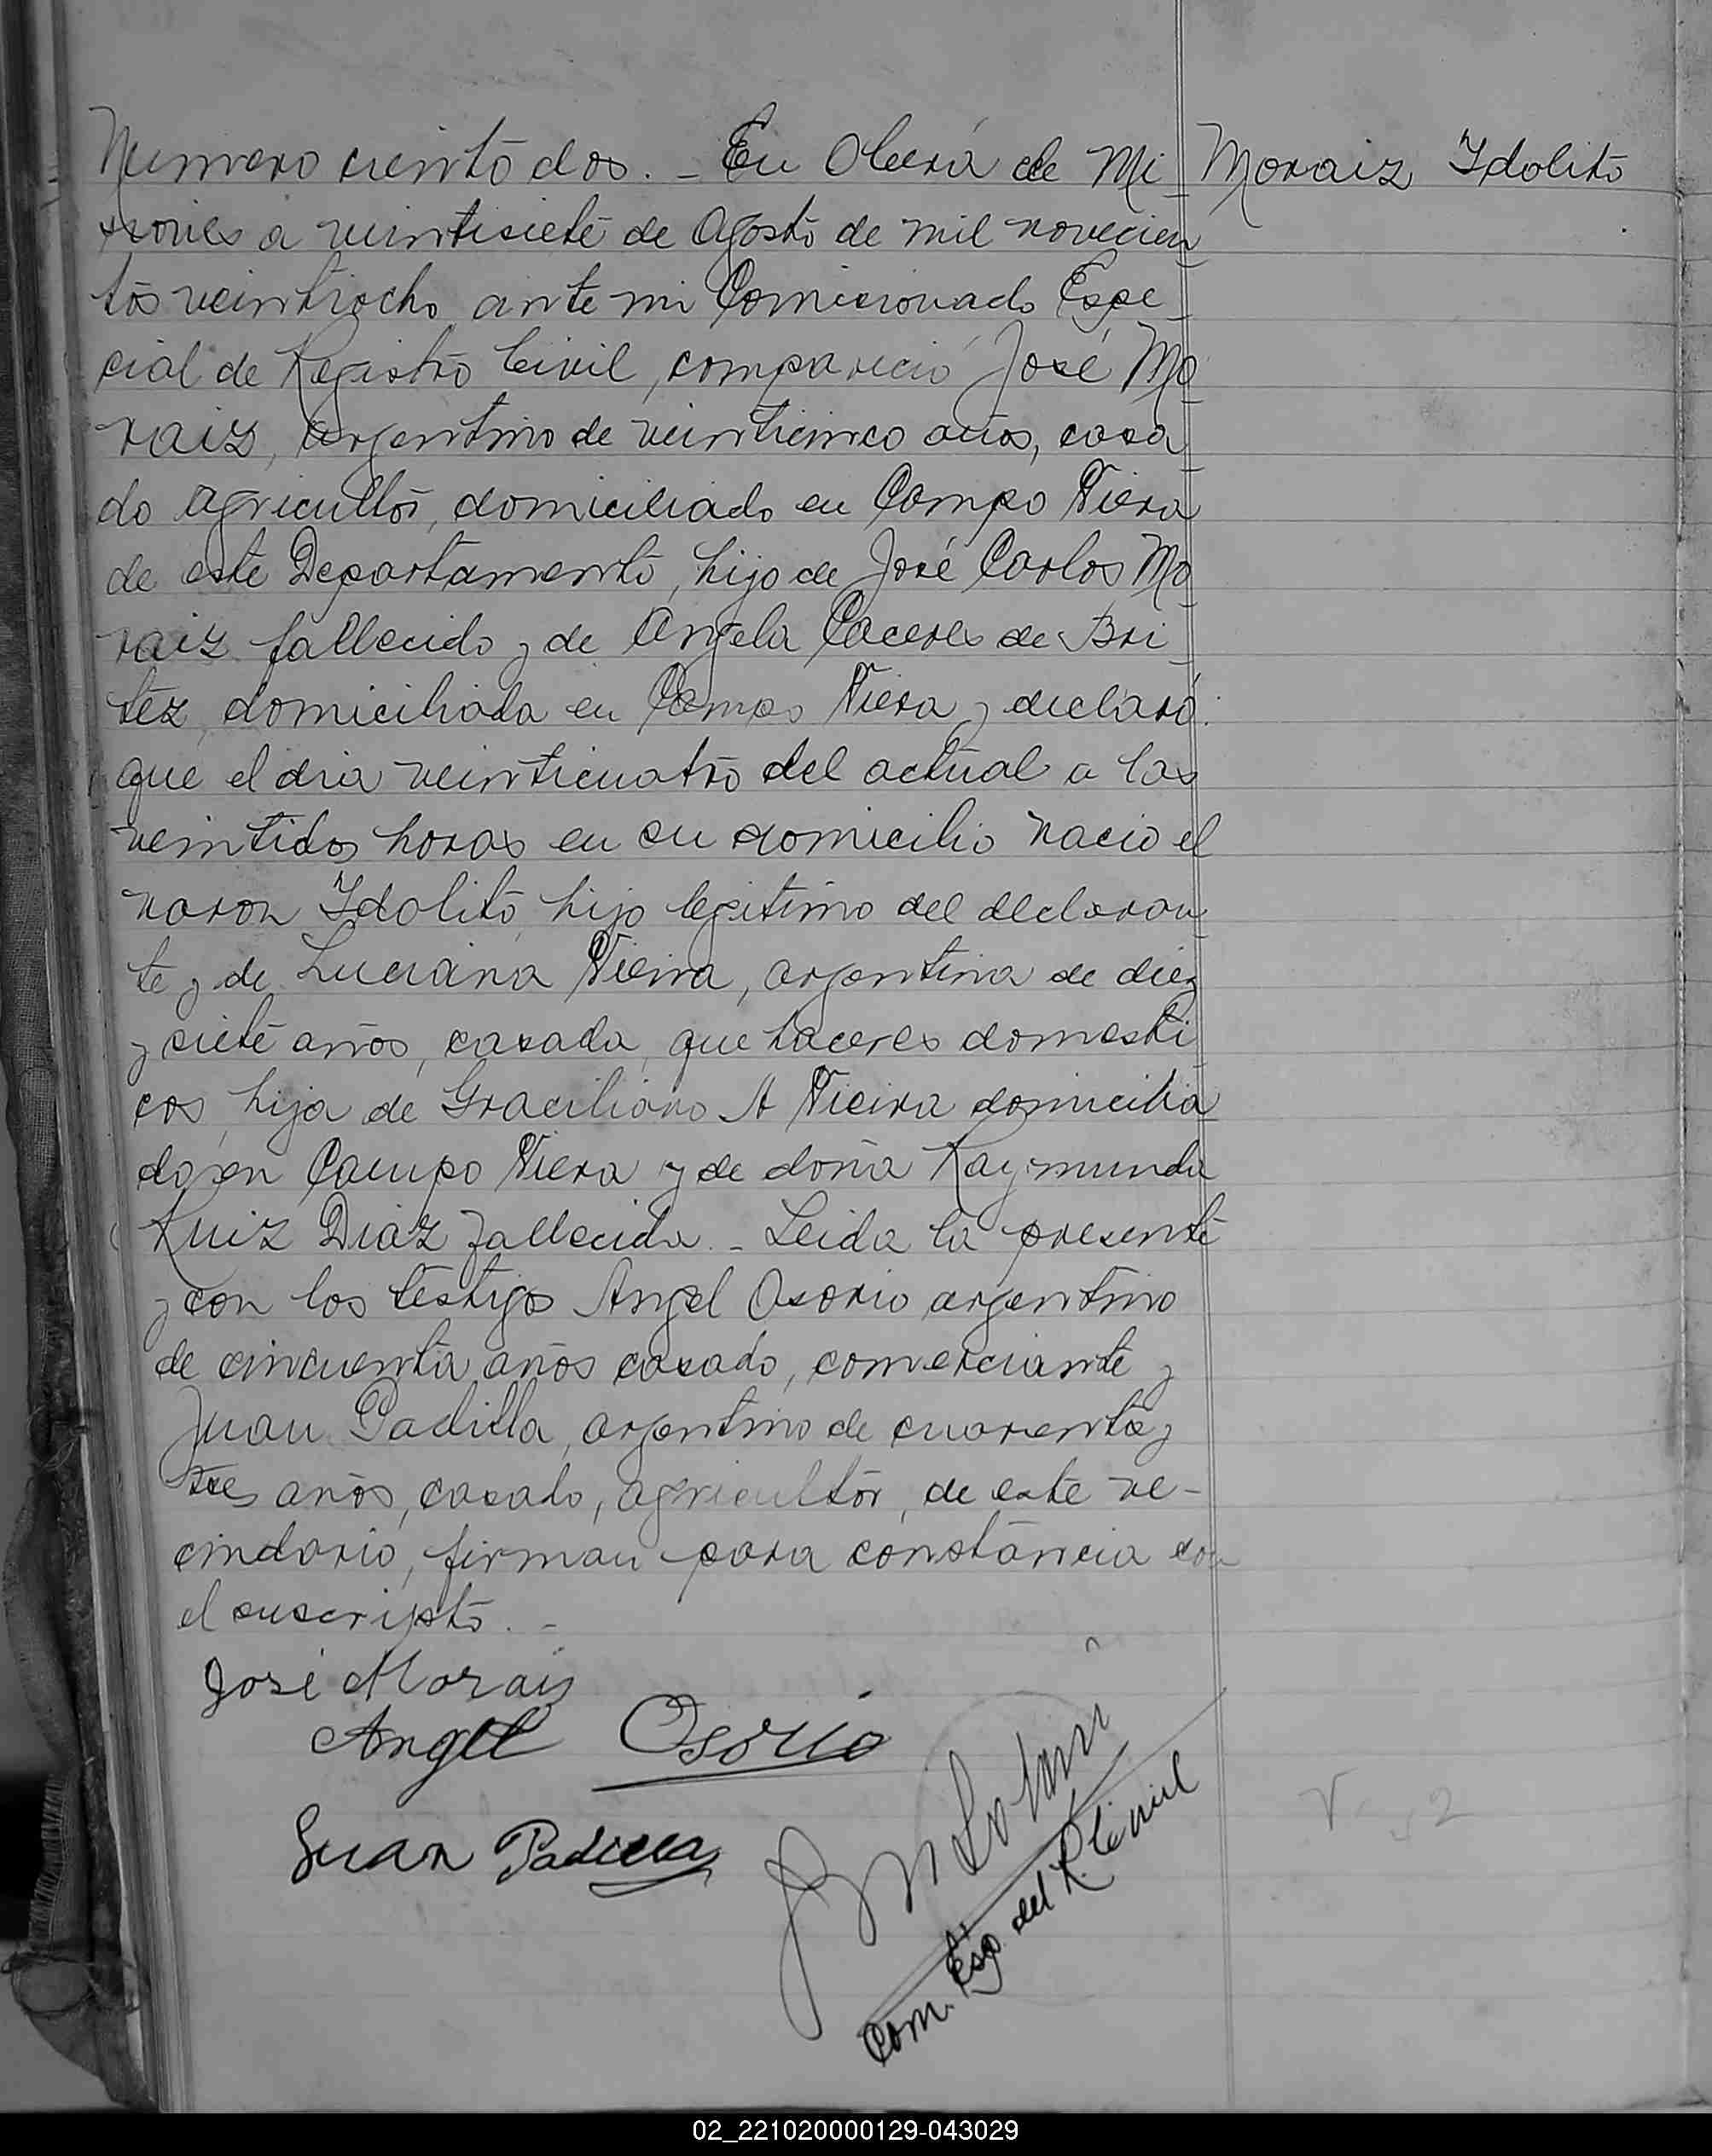 Numero ciento dos. - En Oberá de Mi-
Moraiz Idolito
siones a veintisiete de Agosto de mil novecien-
tos veintiocho ante mi Comicionado Espe-
cial de Registro Civil, compareció José Mo-
raiz, argentino de veinticinco años, casa-
do agricultor, domiciliado en Campo Viera
de este Departamento, hijo de José Carlos Mo-
raiz fallecido y de Angela Caceres de Bri-
tez, domiciliada en Campo Viera y declaró:
que el dia veinticuatro del actual a las
veintidos horas en su domicilio nacio el
varon Idolito, hijo legitimo del declaran-
te y de Luciana Vieira, argentina de diez
y siete años, casada, que haceres domesti-
cos, hija de Graciliano A Vieira domicilia-
do en Campo Viera y de doña Raymunda
Ruiz Diaz fallecida. - Leida la presente
y con los testigos Angel Osorio argentino
de cincuenta años casado, comerciante y
Juan Padilla, argentino de cuarenta y
tres años, casado, agricultor, de este ve-
cindario, firman para constancia con
el suscripto. -
José Morais
Angel Osorio
Juan Padilla
Com. Esp. del R. Civil
02_221020000129-043029